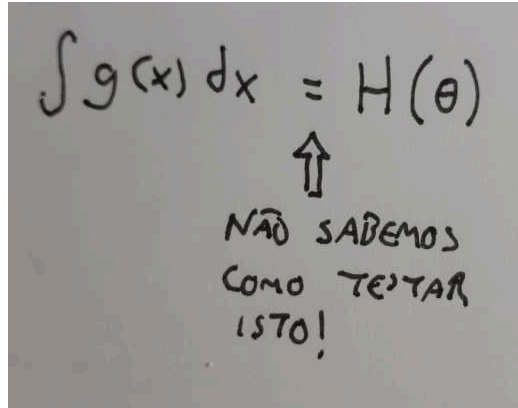 ∫g(x) dx = H(θ)
⇑
NÃO SABEMOS
COMO TESTAR
ISTO!